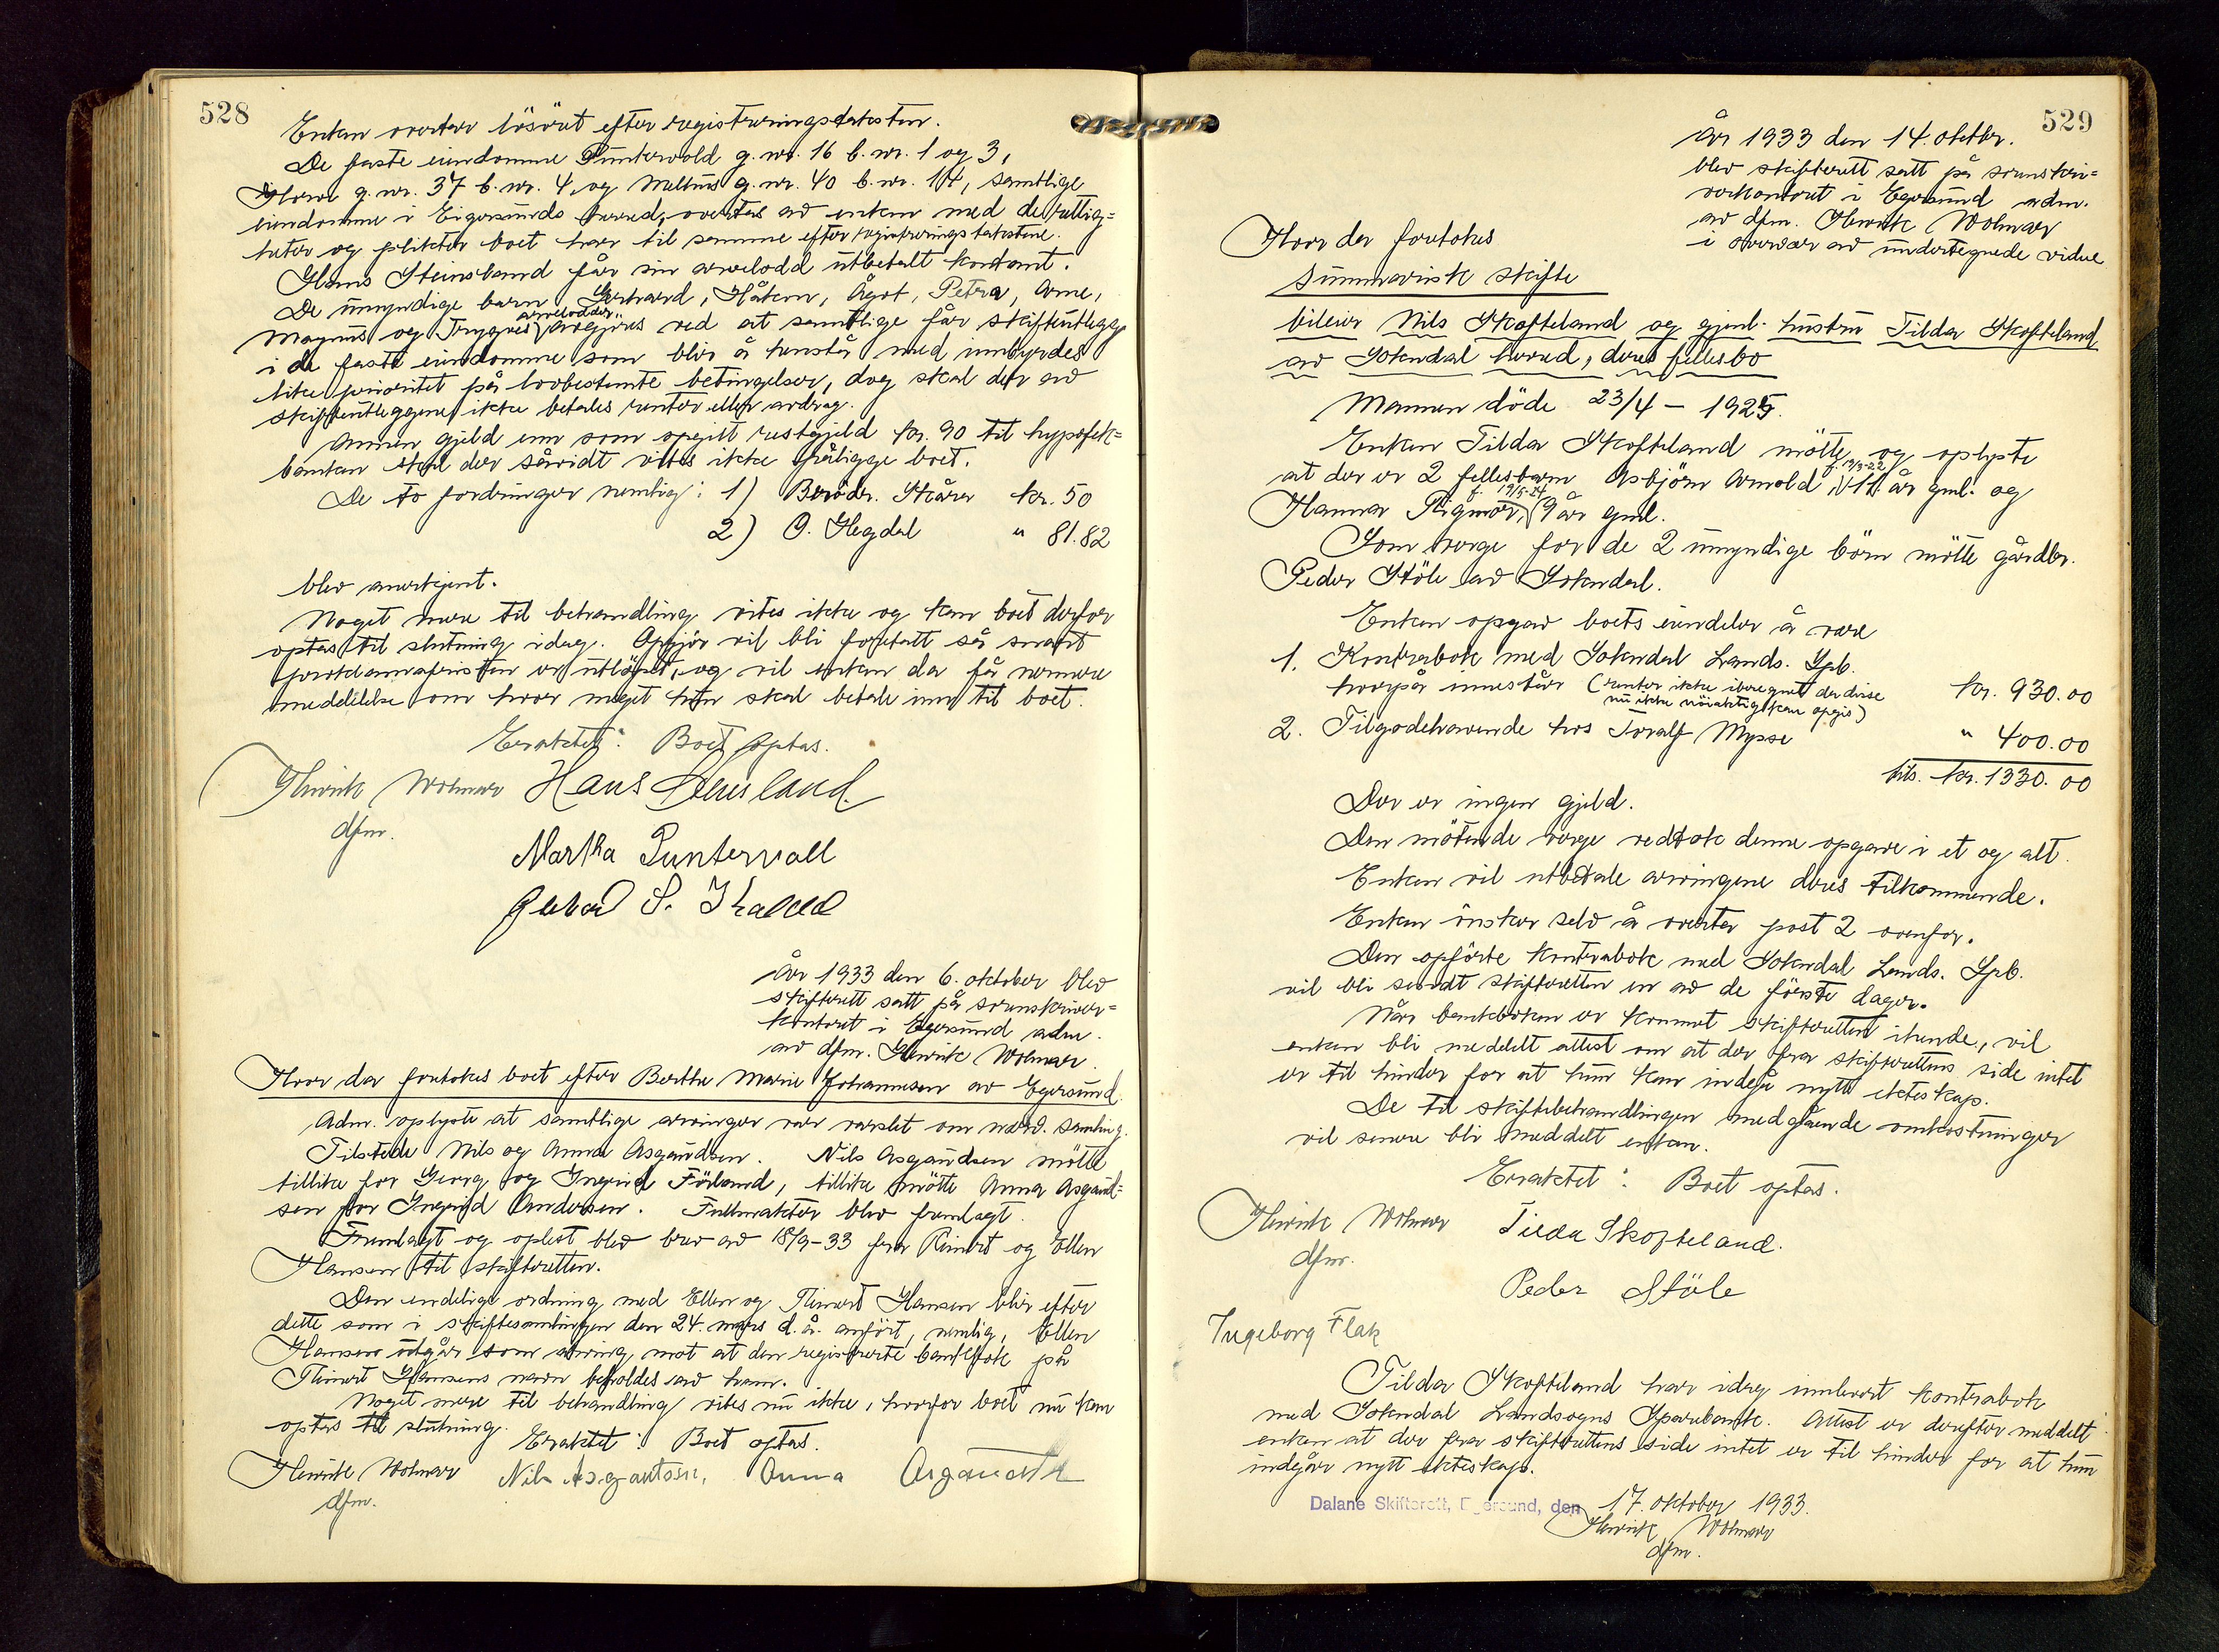 528
Enken overtar lösöret efter registreringstaksten.
De faste eiendomme Puntervold g. nr. 16 b. nr. 1 og 3,
g. nr. 37 b. nr. 4, og g. nr. 40 b. nr. 14, samtlige
eiendomme i Eigersunds herred, overtas av enken med de rettig=
heter og plikter boet har til samme efter registreringstakstene.
Hans Steinsland får sin arvelodd utbetalt kontant.
De umyndige barn Gerhard, Håkon, Ågot, Petra, Arne,
Magnus og Trygves arvelodder avgjöres ved at samtlige får skifteutlegg
i de faste eiendomme som blir å henstå med innbyrdes
like prioritet på lovbestemte betingelser, dog skal der av
skifteutleggene ikke betales renter eller avdrag.
Annen gjeld enn som opgitt restgjeld kr. 90 til hypotek=
banken skal der såvidt vites ikke påligge boet.
De to fordringer nemlig: 1) Brödr. Skåra kr. 50
2) O. Hegdal " 81.82
blev anerkjent.
Noget mere til behandling vites ikke og kan boet derfor
optas til slutning idag. Opgjör vil bli foretatt så snart
proklamafristen er utlöpet, og vil enken da få nærmere
meddelelse om hvor meget hun skal betale inn til boet.
Eraktet: Boet optas.
Henrik Wolmar Hans Steinsland.
dfm.
Martha Puntervoll
S.
År 1933 den 6. oktober blev
skifterett satt på sorenskriver=
kontoret i Egersund adm.
av dfm. Henrik Wolmar.
Hvor da foretokes boet efter Berthe Marie Johannesen av Egersund.
Adm. oplyste at samtlige arvinger var varslet om nærv. samling.
Tilstede Nils og Anna Asgautsen. Nils Asgautsen mötte
tillike for Georg og Ingrid Förland, tillike mötte Anna Asgaut=
sen for Ingrid Andersen. Fullmakter blev fremlagt.
Fremlagt og oplest blev brev av 18/9-33 fra Reinert og Ellen
Hansen til skifteretten.
Den endelige ordning med Ellen og Reinert Hansen blir efter
dette som i skiftesamlingen den 24. mars d.å. anfört, nemlig, Ellen
Hansen utgår som arving mot at den registrerte bankbok på
Reinert Hansens navn beholdes av ham.
Noget mere til behandling vites nu ikke, hvorfor boet nu kan
optas til slutning.
Eraktet: Boet optas.
Henrik Wolmar Nils Asgautsen, Anna Asgautsen
dfm.
529
År 1933 den 14. oktbr.
blev skifterett satt på sorenskri=
verkontoret i Egersund adm.
av dfm. Henrik Wolmar
i overvær av undertegnede vidne
Hvor da foretokes
summarisk skifte
Nils Skofteland og gjenl. hustru Tilda Skofteland
av Sokndal herred, deres fellesbo
Mannen döde 23/4 - 1925.
Enken Tilda Skofteland mötte og oplyste
at der er 2 fellesbarn Asbjörn Arnold, f. 19/3-22 11 år gml. og
Hanna Rigmor, f. 19/5-24 9 år gml.
Som verge for de 2 umyndige börn mötte gårdbr.
Peder Stöle av Sokndal.
Enken opgav boets eiendeler å være
1. Kontrabok med Sokndal Lands. Spb.
hvorpå innestår (renter ikke iberegnet da disse kr. 930.00
nu ikke nöiaktig kan opgis)
2. Tilgodehavende hos Toralf Mysse " 400.00
tils. kr. 1330.00
Der er ingen gjeld.
Den mötende verge vedtok denne opgave i et og alt.
Enken vil utbetale arvingene deres tilkommende.
Enken önsker selv å overta post 2 ovenfor.
Den opförte kontrabok med Sokndal Lands. Spb.
vil bli sendt skifteretten en av de förste dager.
Når bankboken er kommet skifteretten ihende, vil
enken bli meddelt attest om at der fra skifterettens side intet
er til hinder for at hun kan indgå nytt ekteskap.
De til skiftebehandlingen medgående omkostninger
vil senere bli meddelt enken.
Eraktet: Boet optas.
Henrik Wolmar Tilda Skofteland.
dfm.
Peder Stöle
Ingeborg Flak
Tilda Skofteland har idag innlevert kontrabok
med Sokndal Landsogns Sparebank. Attest er derefter meddelt
enken at der fra skifterettens side intet er til hinder for at hun
indgår nytt ekteskap.
Dalane Skifterett, Egersund, den 17. oktober 1933.
Henrik Wolmar
dfm.